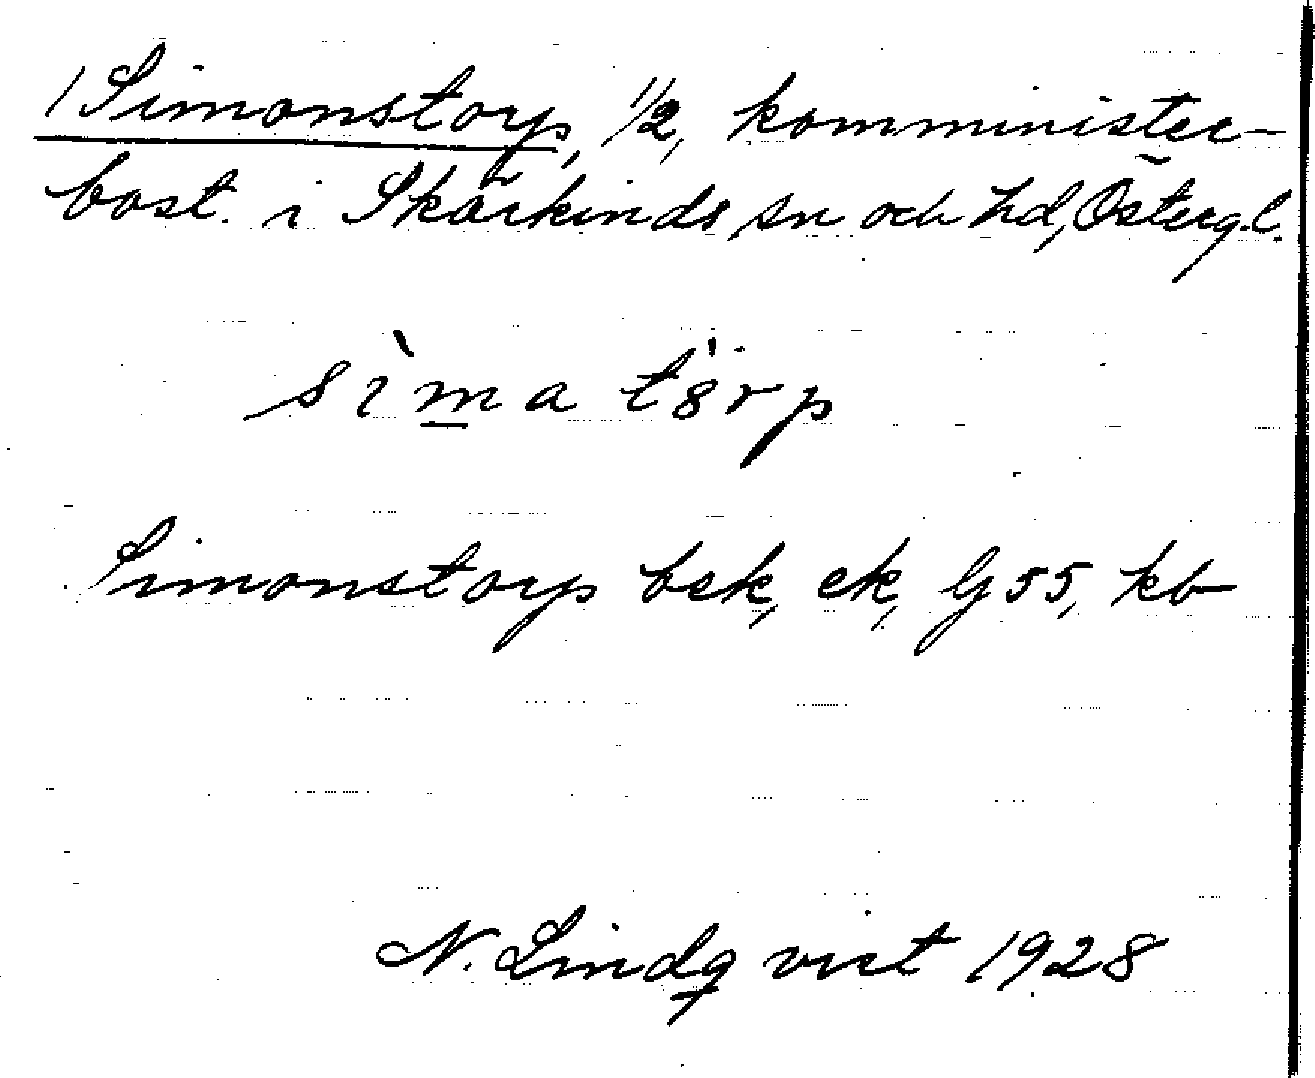 1 Simonstorp, 1/2, komminister-
bost. i Skärkinds sn och hd, Österg.l.
sìmatö̀rp
Simonstorp bsk, ek, G 55, kb
N. Lindqvist 1928